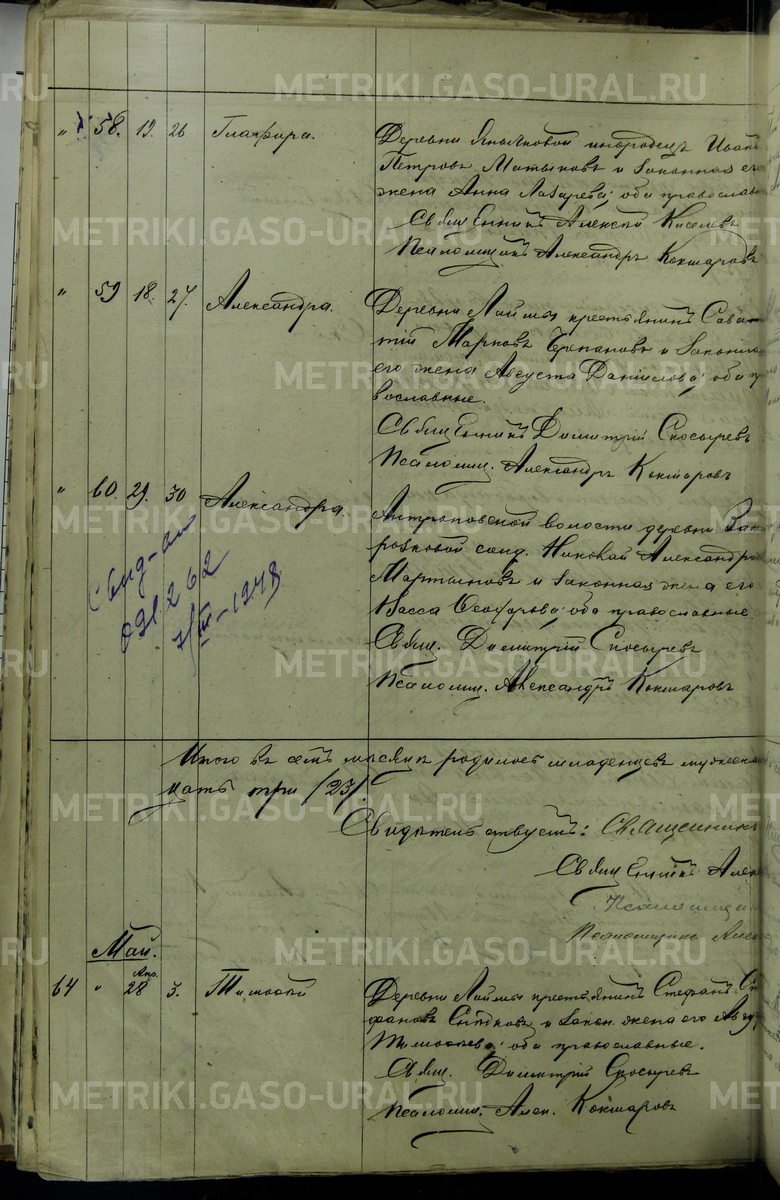 " 58. 19. 26 Глафира. Деревни инородецъ Иванъ
Петровъ Матыковъ и законная его
жена Анна Лазарева; оба православ
Священникъ Алексѣй Киселевъ
Псаломщикъ Александръ Кокшаровъ
" 59 18. 27. Александра. Деревни Лаймы крестьянинъ Сават
тій Марковъ Черепановъ и законная
его жена Августа Даніилова; оба п
вославные.
Священникъ Димитрій Скосыревъ
Псаломщ. Александръ Кокшаровъ
" 60. 29. 30 Александра. Антроповской волости деревни
солд. Николай Александро
Мартыновъ и законная жена его
Васса оба православные.
Свящ. Димитрій Скосыревъ
Псаломщ. Александръ Кокшаровъ
Свид-ви
091262
7/III-1948
Итого въ семъ мѣсяцѣ родилось младенцевъ мужеска
цать три /23/.
Свидѣтельствуетъ: Священникъ
Священникъ Алек
Псаломщик
Псаломщикъ Алек
Май.
64 " Апр. 28 3. Тимоѳей Деревни Лаймы крестьянинъ Стефанъ Сте
фановъ и закон. жена его Авгу
Тимоѳеева; оба православные.
Свящ. Димитрій Скосыревъ
Псаломщ. Алек. Кокшаровъ
METRIKI.GASO-URAL.RU